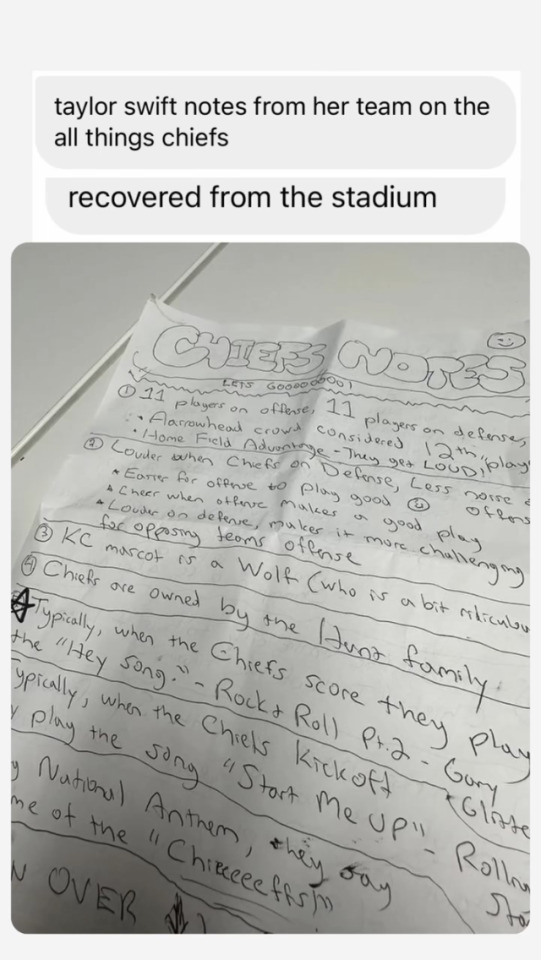 taylor swift notes from her team on the
all things chiefs
recovered from the stadium
CHIEFS NOTES
LETS GOOOOOOOO!
① 11 players on offense, 11 players on defense,
• Aarrowhead crowd considered 12th "play
• Home Field Advantage - They get LOUD!
② Louder when Chiefs on Defense, Less noise
offens
* Easier for offense to play good
* Cheer when offense makes a good play
* Louder on defense, makes it more challenging
for opposing teams offense
③ KC mascot is a Wolf (who is a bit ridiculou
④ Chiefs are owned by the Hunt family
Typically, when the Chiefs score they play
the "Hey Song." - Rock & Roll Pt. 2 - Gary
Glitte
ypically, when the Chiefs Kickoff
y play the song "Start Me UP" - Rollin
Sto
y National Anthem, they say
me of the "Chieeeeffs)"
N OVER